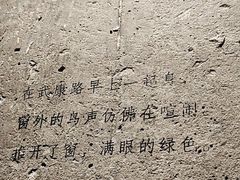 在武康路早上一起身，
窗外的鸟声仿佛在喧闹，
推开了窗，满眼的绿色。